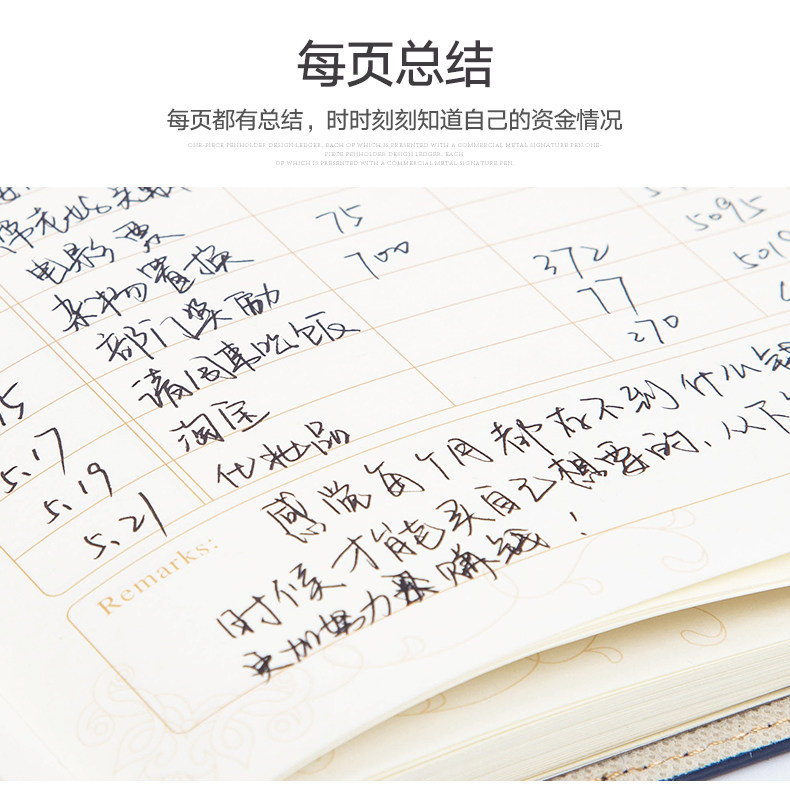 每页总结
每页都有总结，时时刻刻知道自己的资金情况
ONE-PIECE PENHOLDER DESIGN LEDGER, EACH OF WHICH IS PRESENTED WITH A COMMERCIAL METAL SIGNATURE PEN.ONE-
PIECE PENHOLDER DESIGN LEDGER, EACH
OF WHICH IS PRESENTED WITH A COMMERCIAL METAL SIGNATURE PEN.
电影票 75 5095
杂物置换 700
部门奖励 372
请同事吃饭 77
5.17 淘宝 270
5.19 化妆品
5.21
Remarks:
感觉每个月都存不到什么钱
时候才能买自己想要的，从下
更加努力 赚钱！